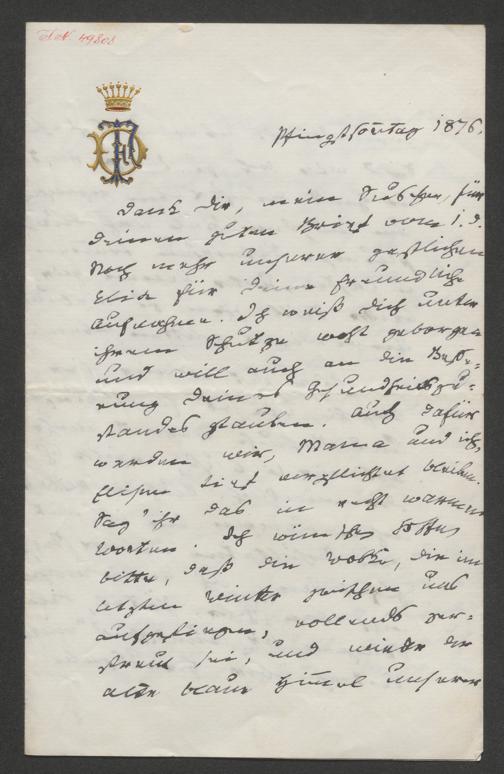 I.N. 49808
Pfingstsonntag 1876.
Dank Dir, mein, für
Deinen guten Brief vom 1. d.
Noch mehr unserer gastlichen
für Deine freundliche
Aufnahme. Ich weiß Dich unter
ihrem Schutze wohl geborgen
und will auch an die Besse-
rung Deines Gesundheitszu-
standes glauben. Auch dafür
werden wir, Mama und ich,
tief verpflichtet bleiben.
Sag' ihr das in recht warmen
Worten. Ich
bitte, daß die Wolke, die im
letzten Winter zwischen uns
aufgestiegen, vollends zer-
streut sei, und wieder der
alte blaue Himmel unserer